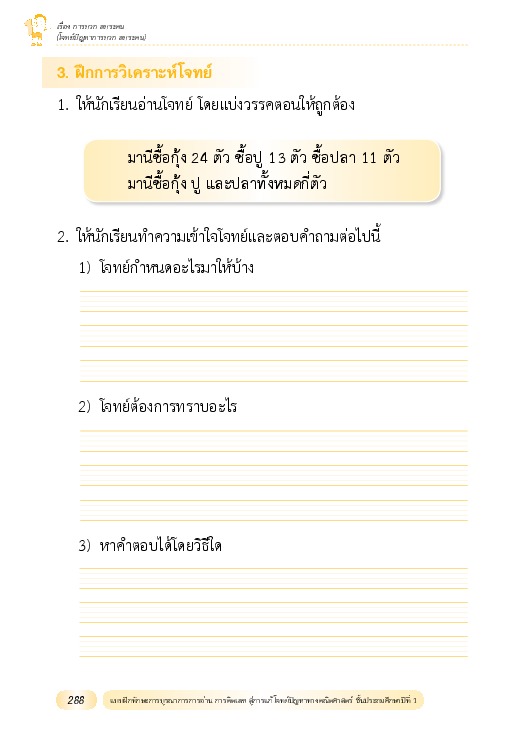 เรื่อง การบวก ลบระคน
(โจทย์ปัญหาการบวก ลบระคน)
3. ฝึกการวิเคราะห์โจทย์
1. ให้นักเรียนอ่านโจทย์ โดยแบ่งวรรคตอนให้ถูกต้อง
มานีซื้อกุ้ง 24 ตัว ซื้อปู 13 ตัว ซื้อปลา 11 ตัว
มานีซื้อกุ้ง ปู และปลาทั้งหมดกี่ตัว
2. ให้นักเรียนทำความเข้าใจโจทย์และตอบคำถามต่อไปนี้
1) โจทย์กำหนดอะไรมาให้บ้าง
2) โจทย์ต้องการทราบอะไร
3) หาคำตอบได้โดยวิธีใด
288 แบบฝึกทักษะการบูรณาการการอ่าน การคิดเลข สู่การแก้โจทย์ปัญหาทางคณิตศาสตร์ ชั้นประถมศึกษาปีที่ 1